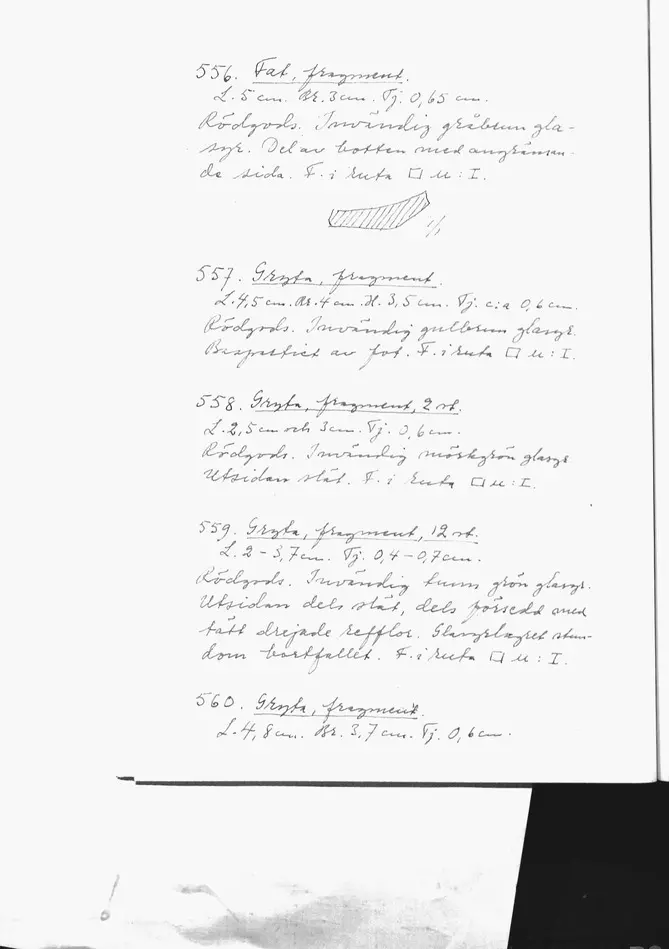 556. Fat, fragment.
L. 5 cm. Br. 3 cm. Tj. 0,65 cm.
Rödgods. Invändig gråbrun gla-
syr. Del av botten med angränsan-
de sida. F. i ruta □ u : I.
1/1
557. Gryta, fragment.
L. 4,5 cm. Br. 4 cm. H. 3,5 cm. Tj. c:a 0,6 cm.
Rödgods. Invändig gulbrun glasyr.
Baspartiet av fot. F. i ruta □ u : I.
558. Gryta, fragment, 2 st.
L. 2,5 cm och 3 cm. Tj. 0,6 cm.
Rödgods. Invändig mörkgrön glasyr
Utsidan slät. F. i ruta □ u : I.
559. Gryta, fragment, 12 st.
L. 2 – 3,7 cm. Tj. 0,4 – 0,7 cm.
Rödgods. Invändig tunn grön glasyr.
Utsidan dels slät, dels försedd med
tätt drejade refflor. Glasyrlagret stun-
dom bortfallet. F. i ruta □ u : I.
560. Gryta, fragment.
L. 4,8 cm. Br. 3,7 cm. Tj. 0,6 cm.